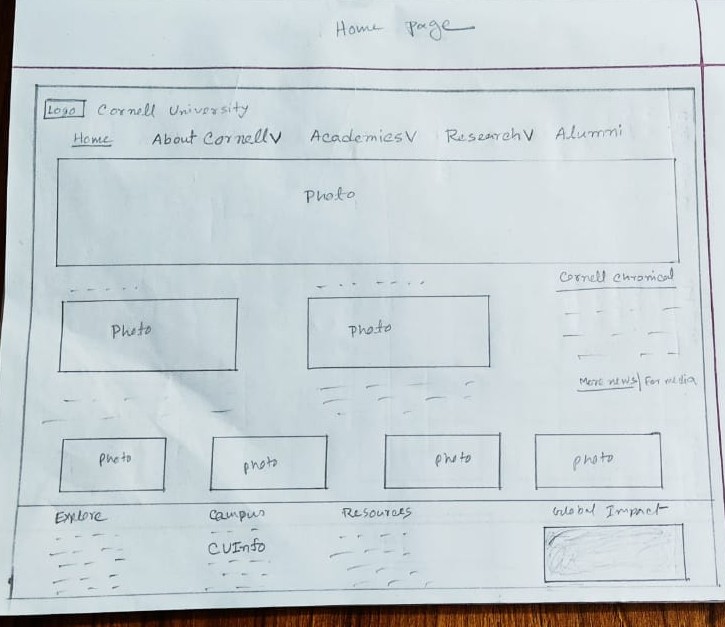 Home page
Logo Cornell University
Home About Cornell∨ Academics∨ Research∨ Alumni
Photo
Cornell Chronical
Photo Photo
More news| For media
Photo photo photo photo
Explore Campus Resources Global Impact
CUInfo